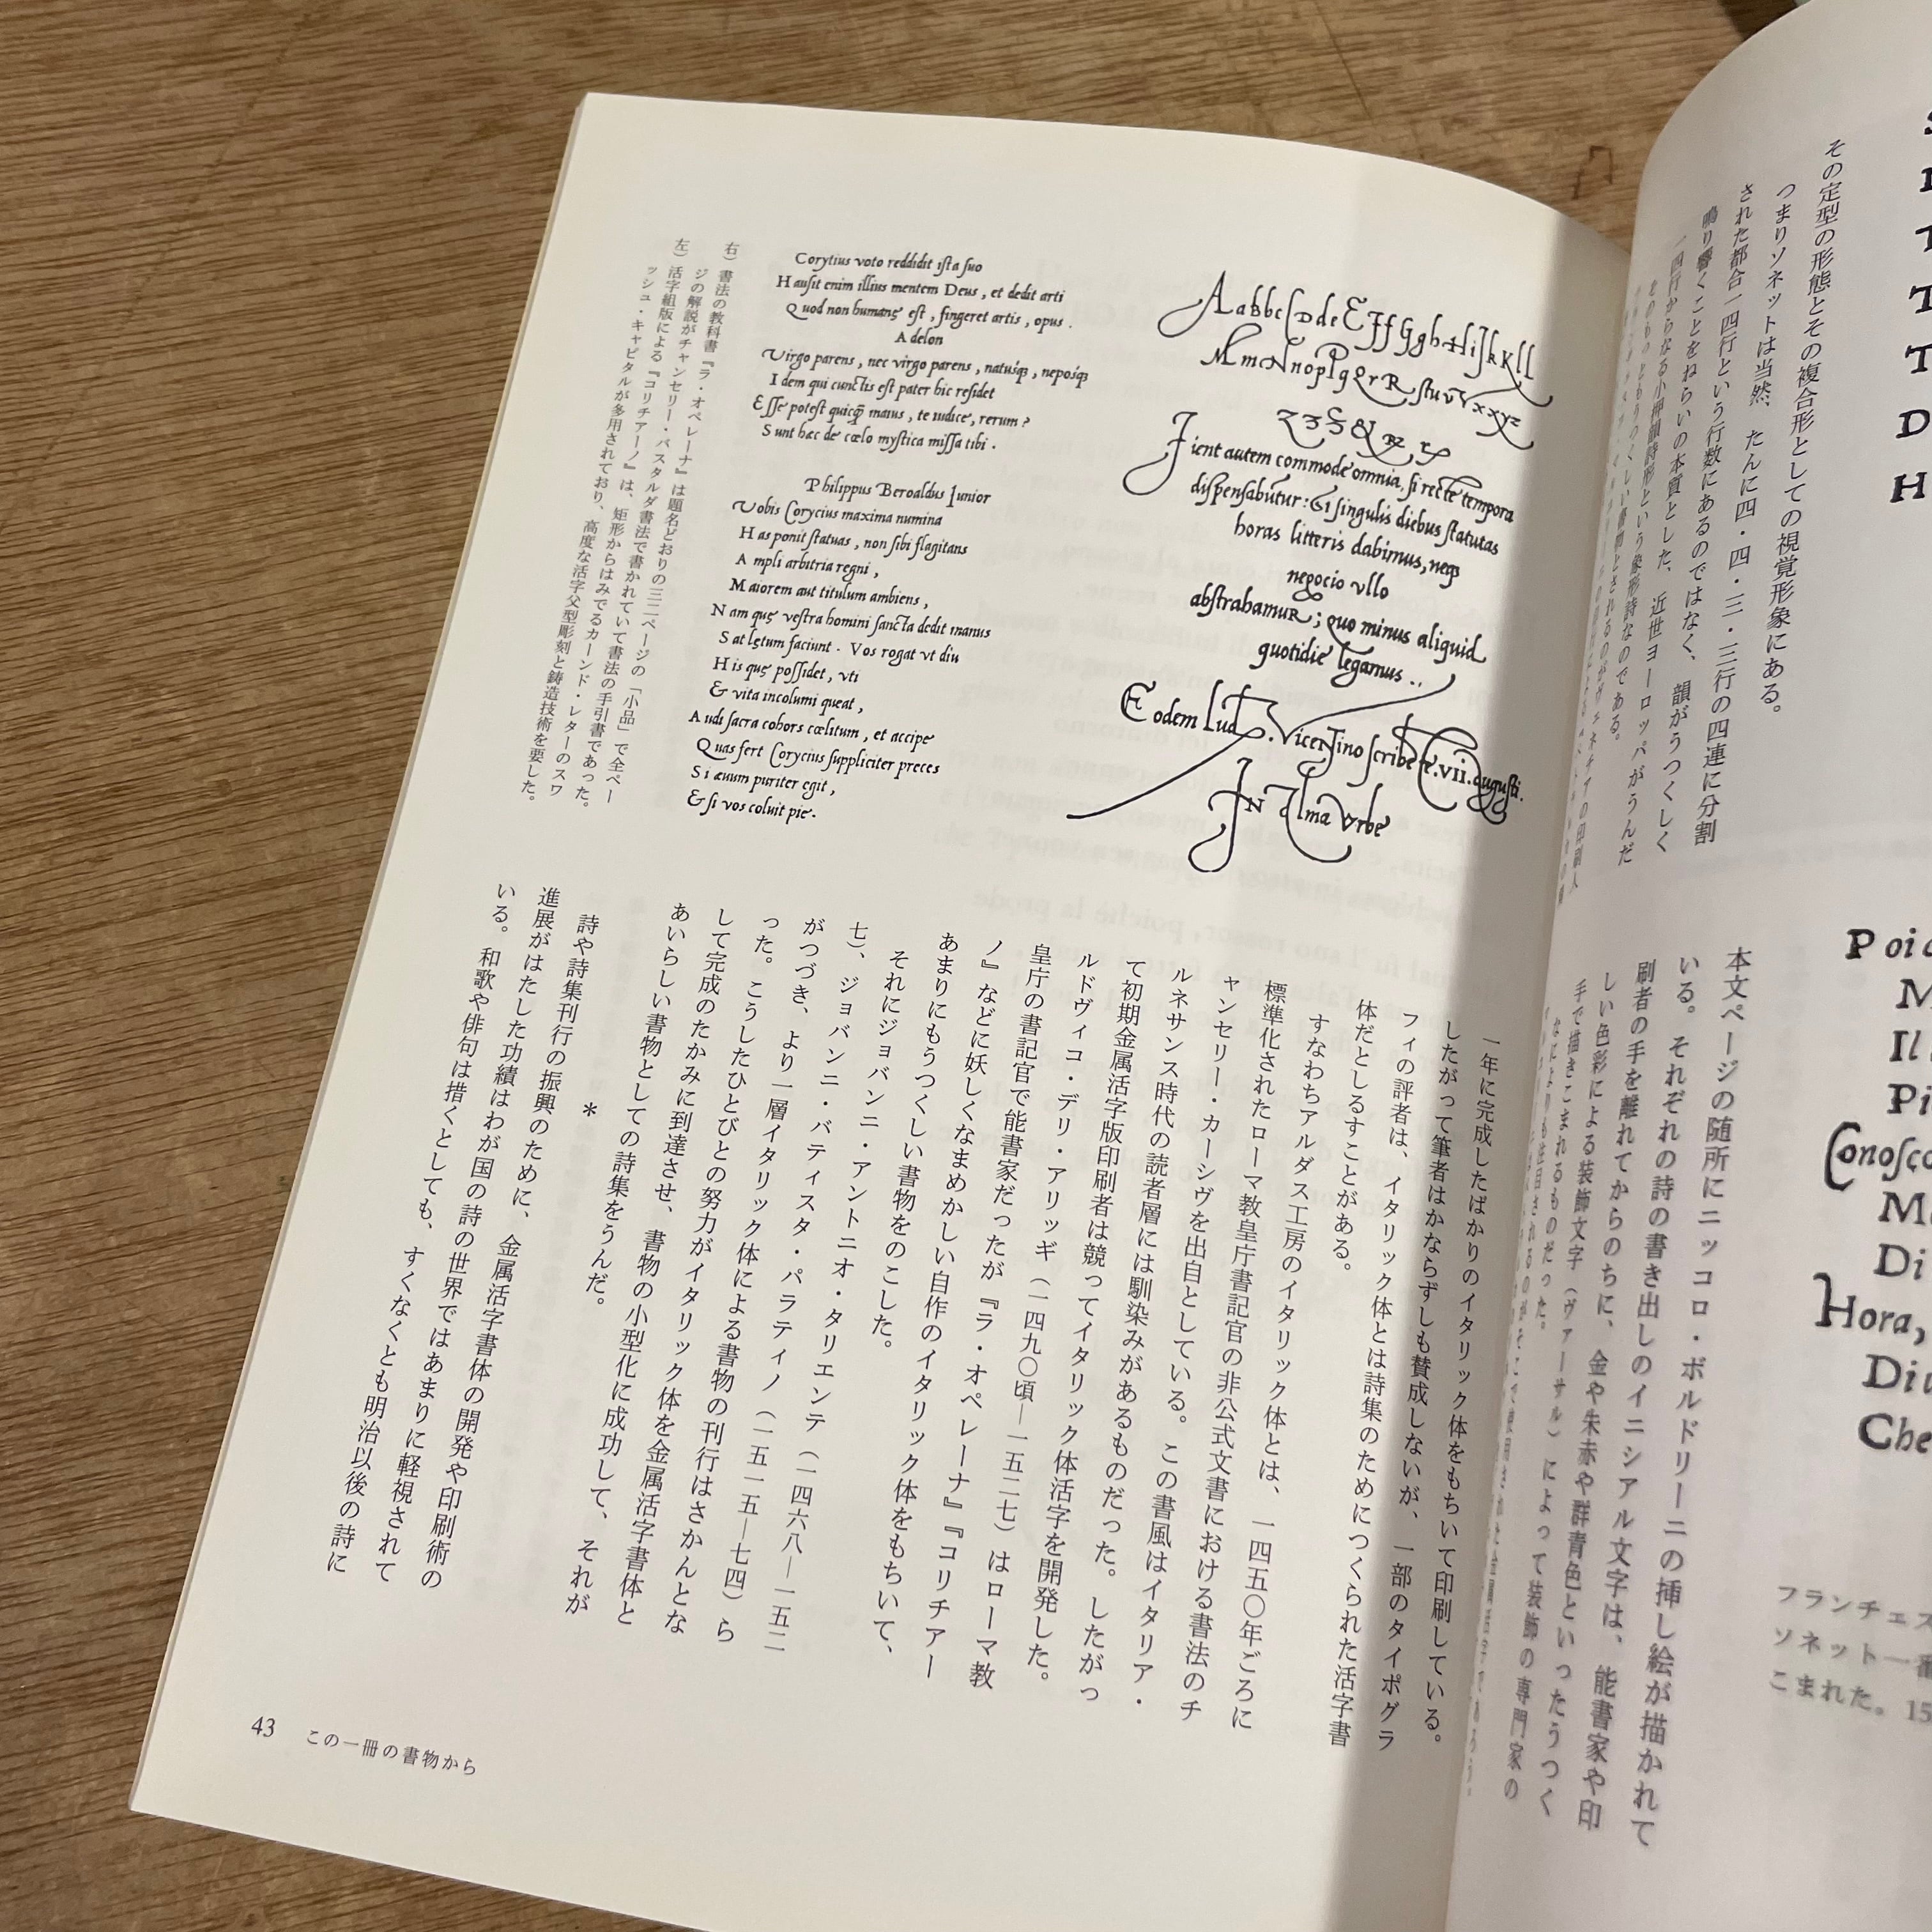 その定型の形態とその複合形としての視覚形象にある。
つまりソネットは当然、たんに四・四・三・三行の四連に分割
された都合一四行という行数にあるのではなく、韻がうつくしく
鳴り響くことをねらいの本質とした、近世ヨーロッパがうんだ
一四行からなる小押韻詩形という象形詩なのである。
Poi
M
Il
Pi
Conosco
M
Di
Hora,
Che
本文ページの随所にニッコロ・ボルドリーニの挿し絵が描かれて
いる。それぞれの詩の書き出しのイニシアル文字は、能書家や印
刷者の手を離れてからのちに、金や朱赤や群青色といったうつく
しい色彩による装飾文字（ヴァーサル）によって装飾の専門家の
手で描きこまれるものだった。
フランチェス
ソネット一番
こまれた。15
AabbcCDdeEFfGgbHiJkKll
MmNnopPqQrRſtuvVxxyz
Fient autem commode omnia, ſi recte tempora
diſpenſabūtur: Et ſingulis diebus ſtatutas
horas litteris dabimus, neq;
negocio vllo
abſtrahamur; quo minus aliquid
quotidie legamus..
Eodem Lud. Vicentino ſcribente.vii.auguſti.
IN Alma Vrbe
Corytius voto reddidit iſta ſuo
Hauſit enim illius mentem Deus, et dedit arti
Quod non humanę eſt, fingeret artis, opus.
Adelon
Virgo parens, nec virgo parens, natuſq;, nepoſq;
Idem qui cunctis eſt pater hic reſidet
Eſſe poteſt quicq̃ maius, te iudice, rerum?
Sunt hæc de cœlo myſtica miſſa tibi.
Philippus Beroaldus Iunior
Vobis Corycius maxima numina
Has ponit ſtatuas, non ſibi flagitans
Ampli arbitria regni,
Maiorem aut titulum ambiens,
Nam quę veſtra homini ſancta dedit manus
Sat lętum faciunt. Vos rogat vt diu
His quę poſſidet, vti
& vita incolumi queat,
Audi ſacra cohors cœlitum, et accipe
Quas fert Corycius ſuppliciter preces
Si æuum puriter egit,
& ſi vos coluit pie.
右）書法の教科書『ラ・オペレーナ』は題名どおりの三二ページの「小品」で全ペー
ジの解説がチャンセリー・バスタルダ書法で書かれていて書法の手引書であった。
左）活字組版による『コリチアーノ』は、矩形からはみでるカーンド・レターのスワ
ッシュ・キャピタルが多用されており、高度な活字父型彫刻と鋳造技術を要した。
一年に完成したばかりのイタリック体をもちいて印刷している。
したがって筆者はかならずしも賛成しないが、一部のタイポグラ
フィの評者は、イタリック体とは詩集のためにつくられた活字書
体だとしるすことがある。
すなわちアルダス工房のイタリック体とは、一四五〇年ごろに
標準化されたローマ教皇庁書記官の非公式文書における書法のチ
ャンセリー・カーシヴを出自としている。この書風はイタリア・
ルネサンス時代の読者層には馴染みがあるものだった。したがっ
て初期金属活字版印刷者は競ってイタリック体活字を開発した。
ルドヴィコ・デリ・アリッギ（一四九〇頃—一五二七）はローマ教
皇庁の書記官で能書家だったが『ラ・オペレーナ』『コリチアー
ノ』などに妖しくなまめかしい自作のイタリック体をもちいて、
あまりにもうつくしい書物をのこした。
それにジョバンニ・アントニオ・タリエンテ（一四六八—一五二
七）、ジョバンニ・バティスタ・パラティノ（一五一五—七四）ら
がつづき、より一層イタリック体による書物の刊行はさかんとな
った。こうしたひとびとの努力がイタリック体を金属活字書体と
して完成のたかみに到達させ、書物の小型化に成功して、それが
あいらしい書物としての詩集をうんだ。
＊
詩や詩集刊行の振興のために、金属活字書体の開発や印刷術の
進展がはたした功績はわが国の詩の世界ではあまりに軽視されて
いる。和歌や俳句は措くとしても、すくなくとも明治以後の詩に
43 この一冊の書物から